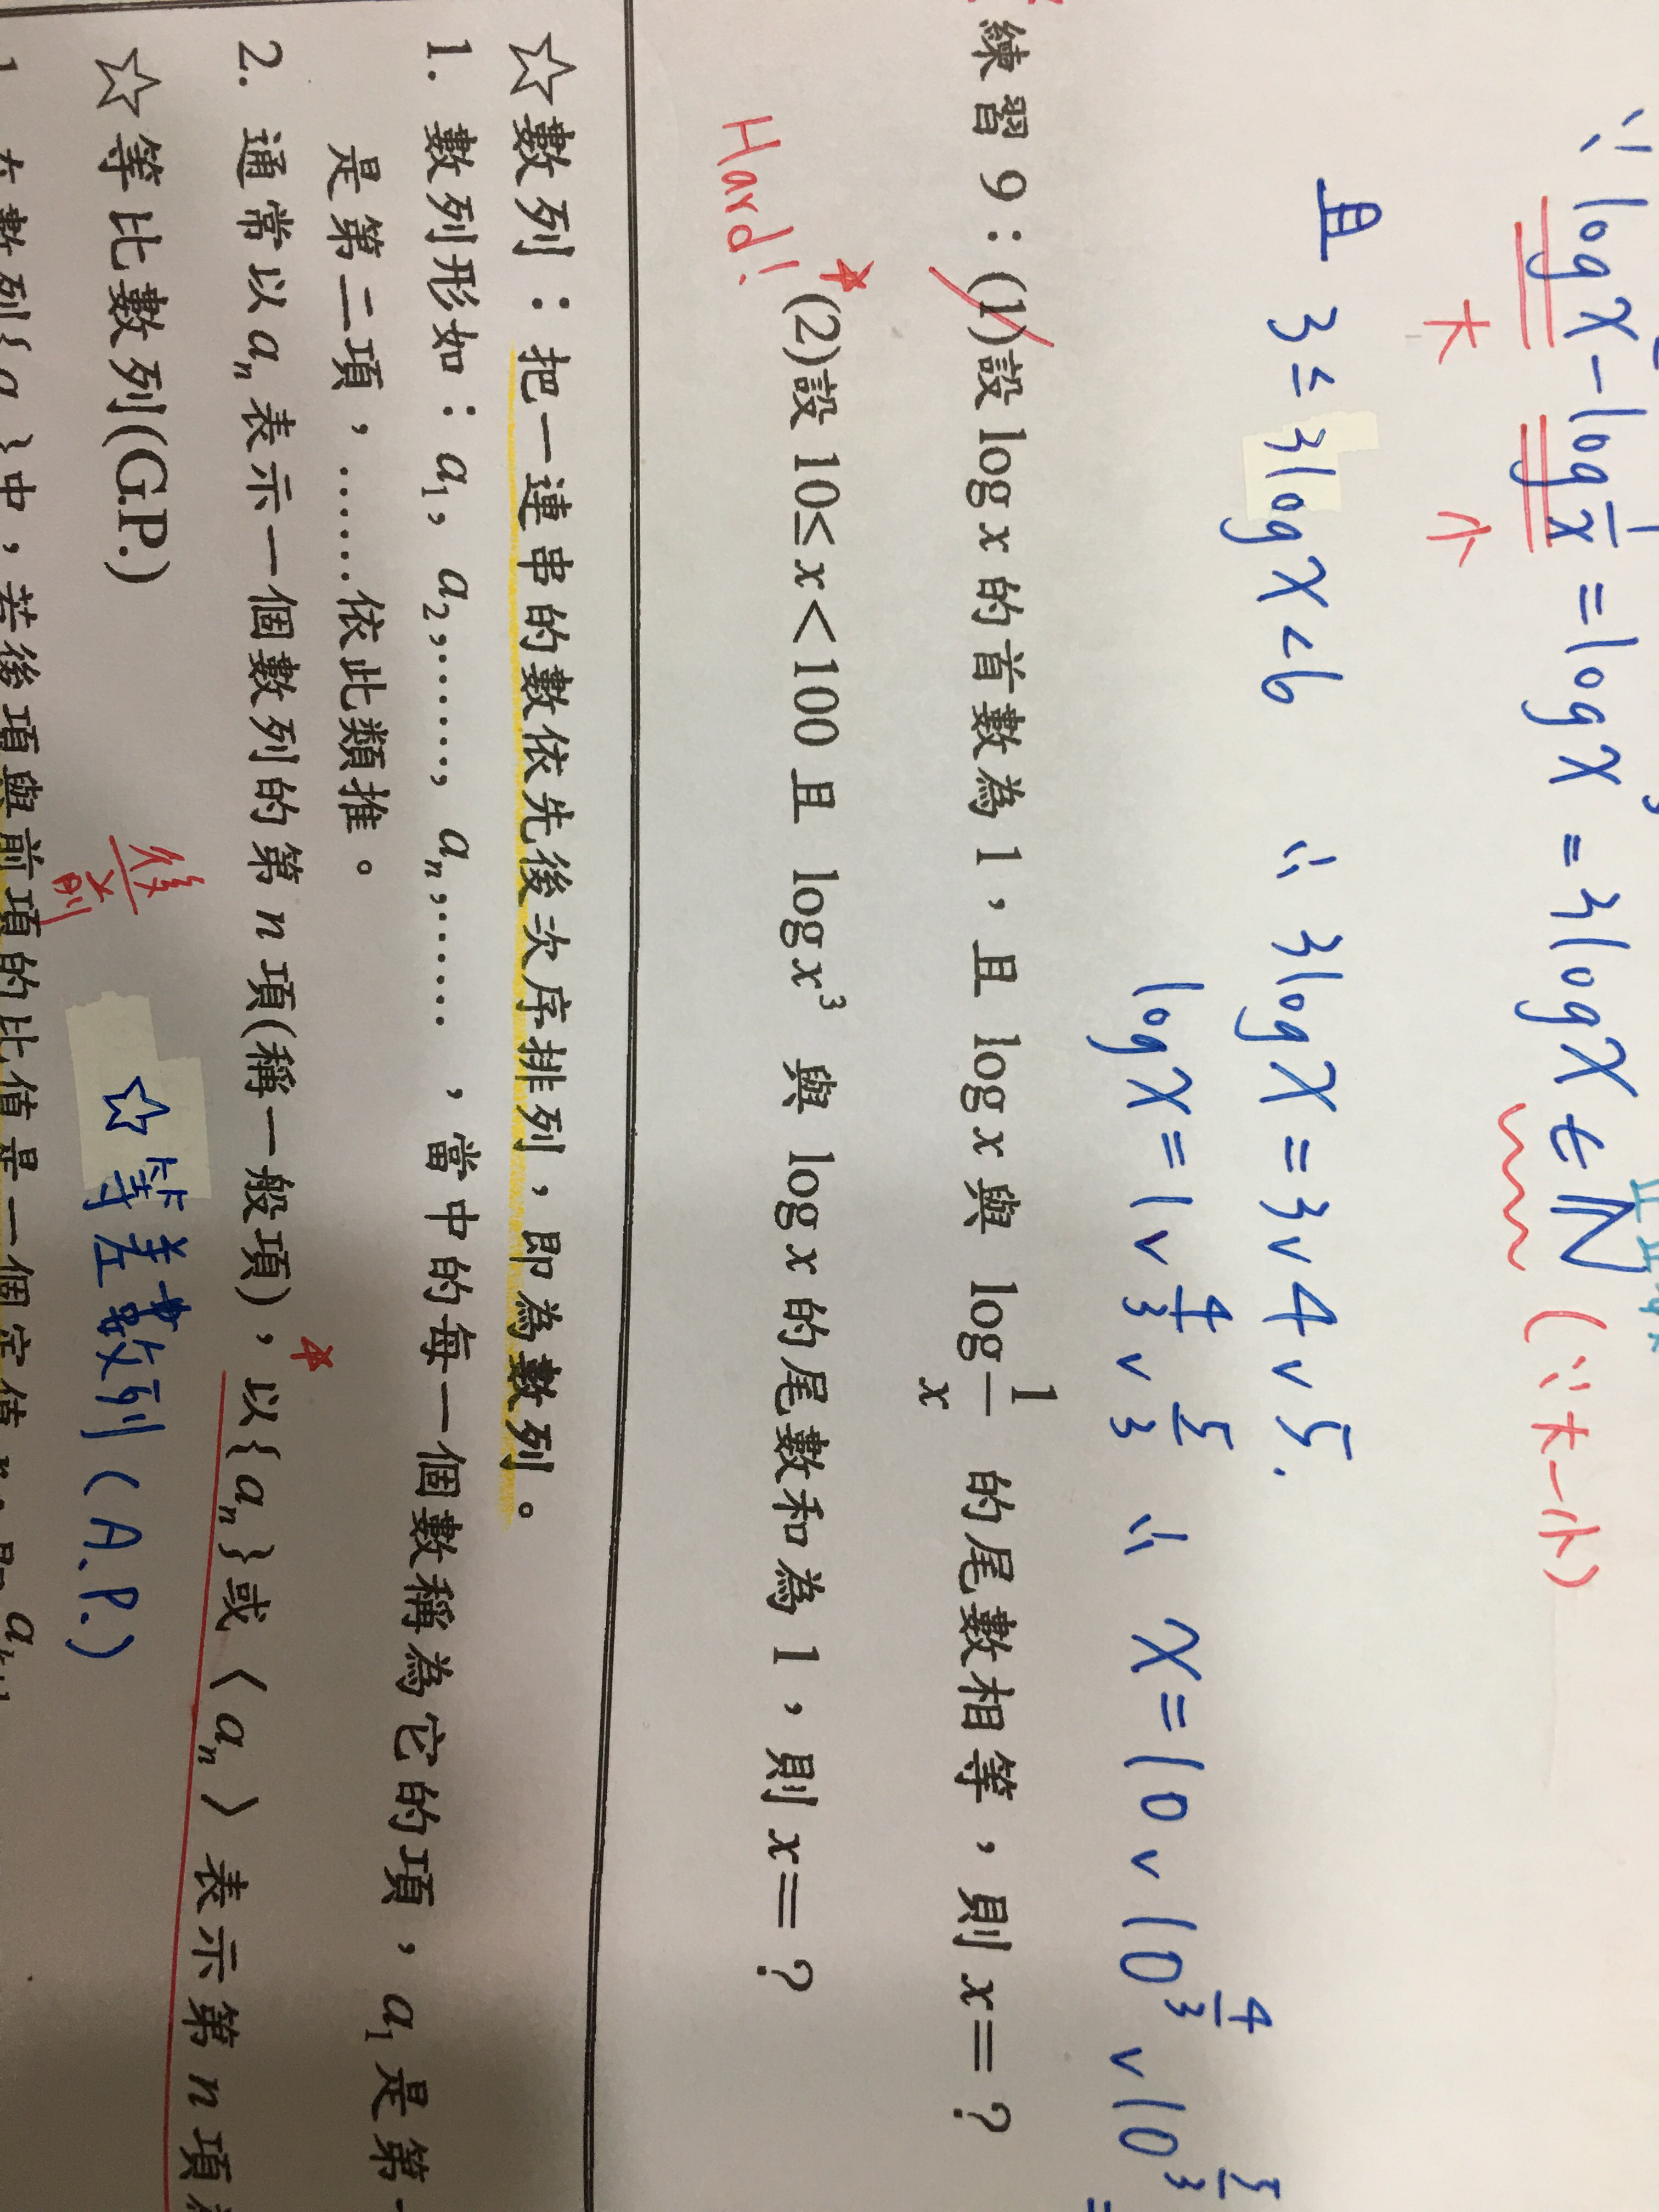 ∵ log x − log 1/x² = log x³ = 3 log x ∈ ℕ (∵大一小)
大 小
且 3 ≤ 3 log x < 6 ∴ 3 log x = 3 ∨ 4 ∨ 5.
log x = 1 ∨ 4/3 ∨ 5/3 ∴ x = 10 ∨ 10^(4/3) ∨ 10^(5/3)
練習 9：(1)設 log x 的首數為 1，且 log x 與 log 1/x 的尾數相等，則 x＝？
*(2)設 10≤x＜100 且 log x³ 與 log x 的尾數和為 1，則 x＝？
Hard!
☆數列：把一連串的數依先後次序排列，即為數列。
1. 數列形如：a₁，a₂，……，aₙ，……，當中的每一個數稱為它的項，a₁是第一
是第二項，……依此類推。
2. 通常以 aₙ 表示一個數列的第 n 項(稱一般項)，以{aₙ}或〈aₙ〉表示第 n 項
☆等比數列(G.P.)
後/前
☆等差數列(A.P.)